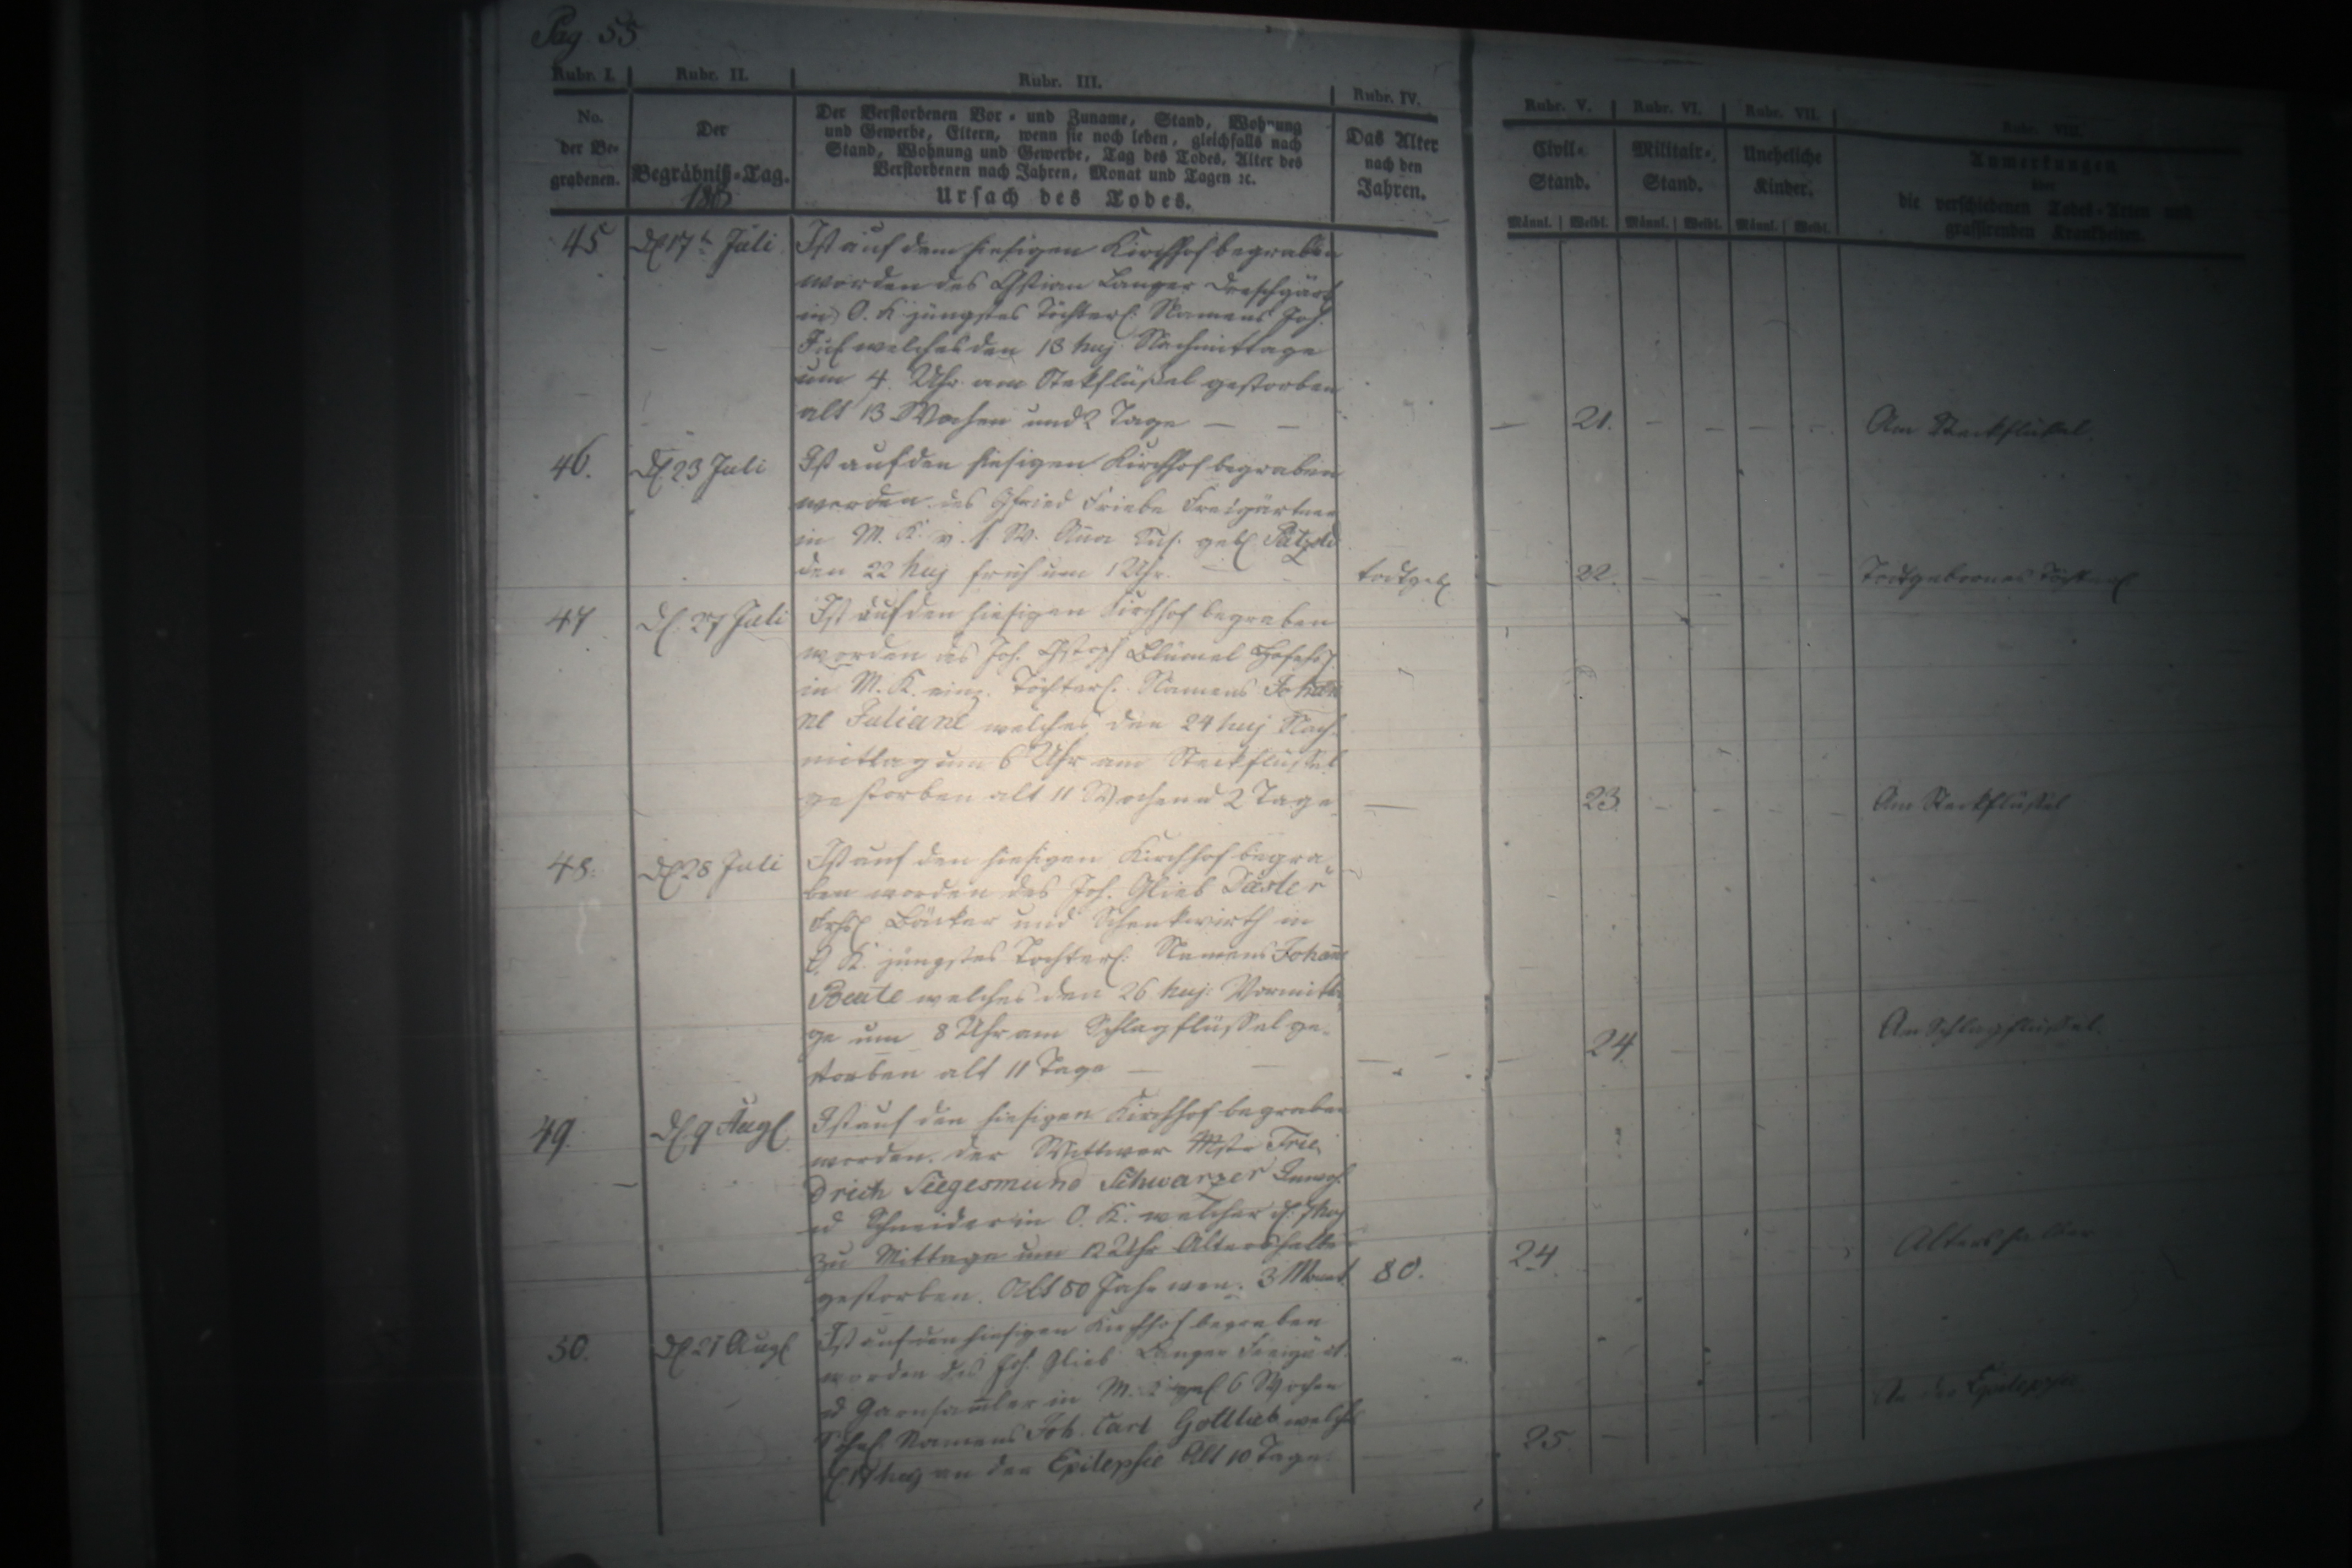 Pag 55
Rubr. I. Rubr. II. Rubr. III. Rubr. IV. Rubr. V. Rubr. VI. Rubr. VII. Rubr. VIII.
No. der Be- grabenen.
Der Begräbniß-Tag.
Der Verstorbenen Vor- und Zuname, Stand, Wohnung
und Gewerbe, Eltern, wenn sie noch leben, gleichfalls nach
Stand, Wohnung und Gewerbe, Tag des Todes, Alter des
Verstorbenen nach Jahren, Monat und Tagen ꝛc.
Ursach des Todes.
Das Alter
nach den
Jahren.
Civil-
Stand.
Militair-
Stand.
Uneheliche
Kinder.
Anmerkungen
über
die verschiedenen Todes-Arten und
grassirenden Krankheiten.
Männl. Weibl. Männl. Weibl. Männl. Weibl.
45 d 17t Juli Ist auf dem hiesigen Kirchhof begraben
worden des Langer
in O. K. jüngstes Töchterl. Namens Joh.
welches den 13 huj. Nachmittage
um 4 Uhr am Stekflüßel gestorben
alt 13 Wochen und 2 Tage 21. Am Steckflüßel
46. d 23 Juli Ist auf den hiesigen Kirchhof begraben
worden des Gfried Friebe Freigärtner
in M. K. Anna geb. Pätzold
den 22 huj früh um 1 Uhr todtgeb 22. Todtgebornes Töchterl
47 d. 27 Juli Ist auf den hiesigen Kirchhof begraben
worden des Joh. Blümel
in M. K. einz. Töchterl. Namens Johan
ne Juliane welches den 24 huj Nach-
mittag um 6 Uhr am Steckflüßel
gestorben alt 11 Wochen u 2 Tage 23. Am Steckflüßel
48. d 28 Juli Ist auf den hiesigen Kirchhof begra-
ben worden des Joh. Glieb
Bäcker und Schenkwirth in
O. K. jüngstes Tochterl. Namens Johane
Beate welches den 26 huj. Vormitta
ge um 8 Uhr am Schlagflüssel ge-
storben alt 11 Tage 24. Am Schlagflüssel
49. d. 9 Aug Ist auf den hiesigen Kirchhof begraben
worden der Wittwer Mstr Frie
drich Siegesmund Schwarzer
ud Schneider in O. K. welcher d. 7 huj
zu Mittage um 12 Uhr Altershalber
gestorben. Alt 80 Jahr wen. 3 Monat 80. 24. Altershalber
50. d 21 Aug Ist auf den hiesigen Kirchhof begraben
worden des Joh. Glieb Langer Freigärt.
ud Garnsamler in M. K. 6 Wochen
Namens Joh. Carl Gottlieb welches
d 17 huj an der Epilepsie Alt 10 Tage 25. An der Epilepsie